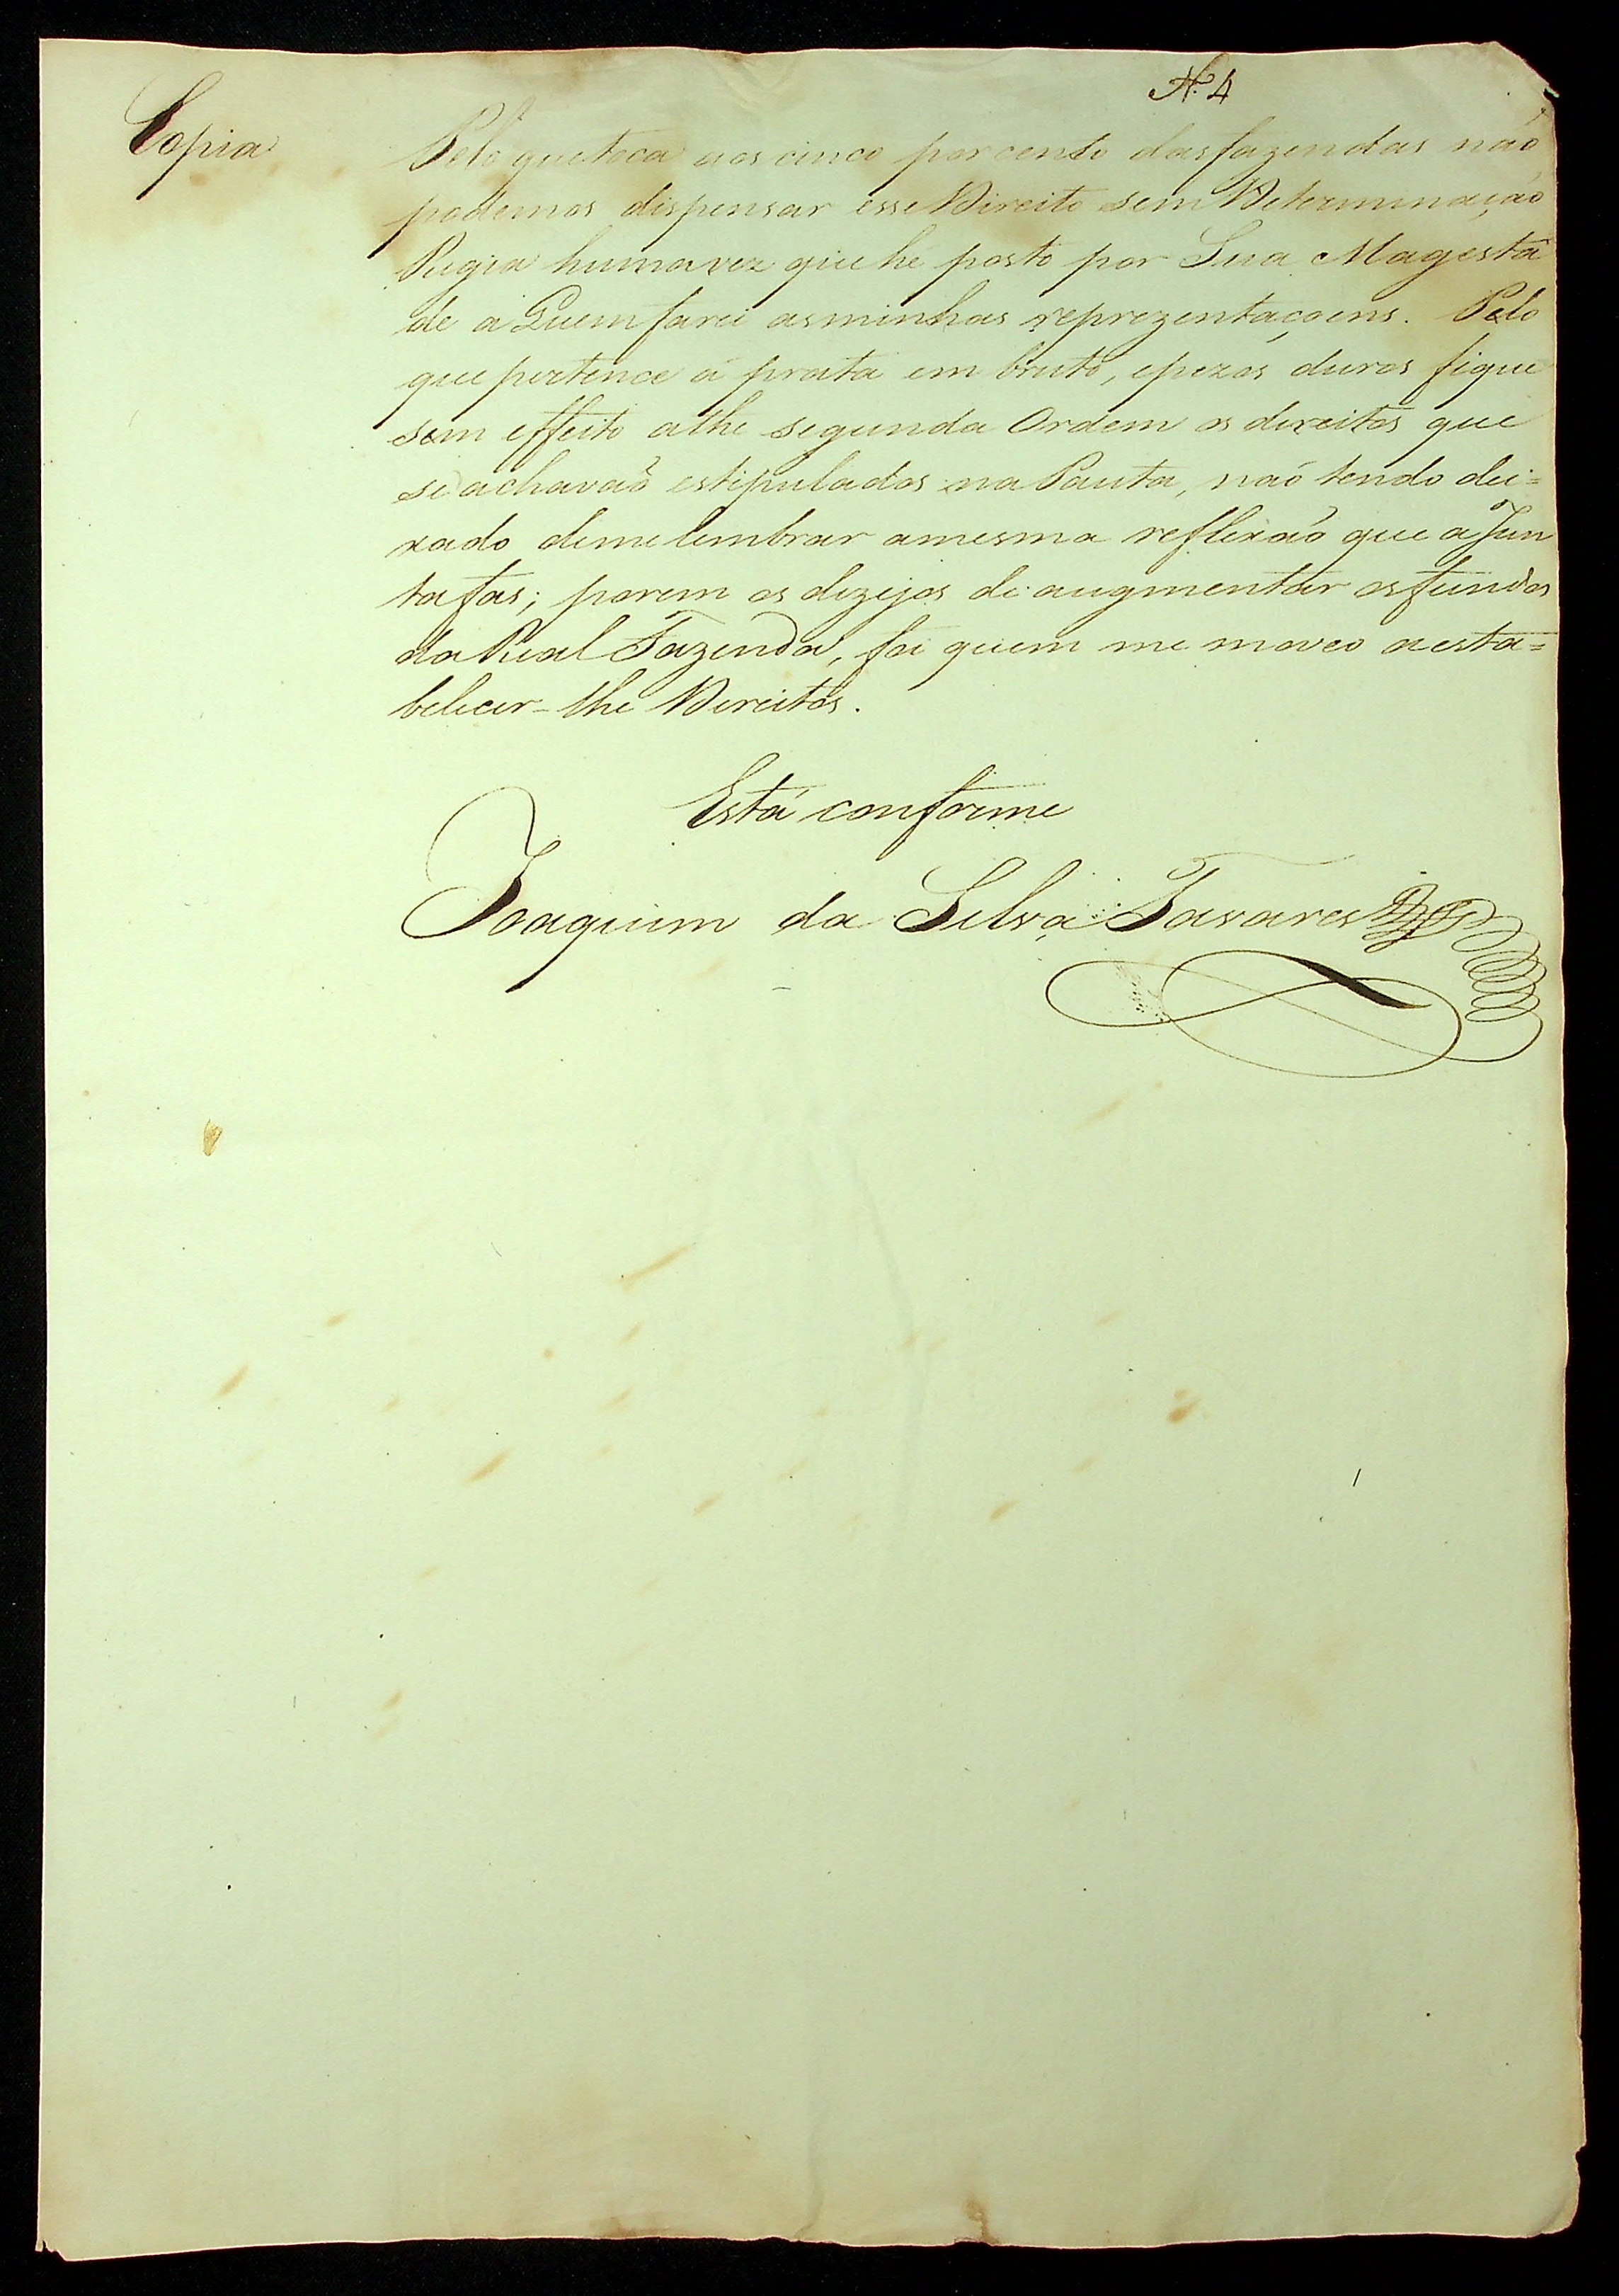 N. 4
Copia
Pelo que toca aos cinco por cento das fazendas não
podemos dispensar esse Direito sem Determinação
Regia huma vez que hé posto por Sua Magesta
de a Quem farei as minhas reprezentaçoens. Pelo
que pertence á prata em bruto, e pezos duros fique
sem effeito athe segunda Ordem os direitos que
se achavaõ estipulados na Pauta, naõ tendo dei=
xado de me lembrar a mesma reflexaõ que a Jun
ta fas; porem os dezejos de augmentar os fundos
da Real Fazenda, foi quem me moveo a esta=
belecer-lhe Direitos.
Está conforme
Joaquim da Silva Tavares